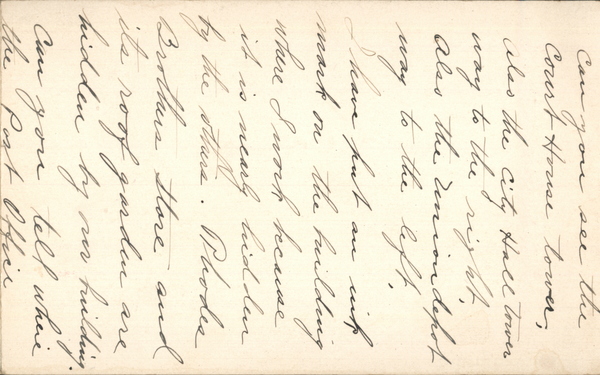 Can you see the
Court House tower,
Also the City Hall tower
way to the right,
Also the Union depot
way to the left,
I have put an ink
mark on the building
where I work because
it is nearly hidden
by the others. Rhodes
Brothers store and
its roof garden are
hidden by our building.
Can you tell where
the Post Office